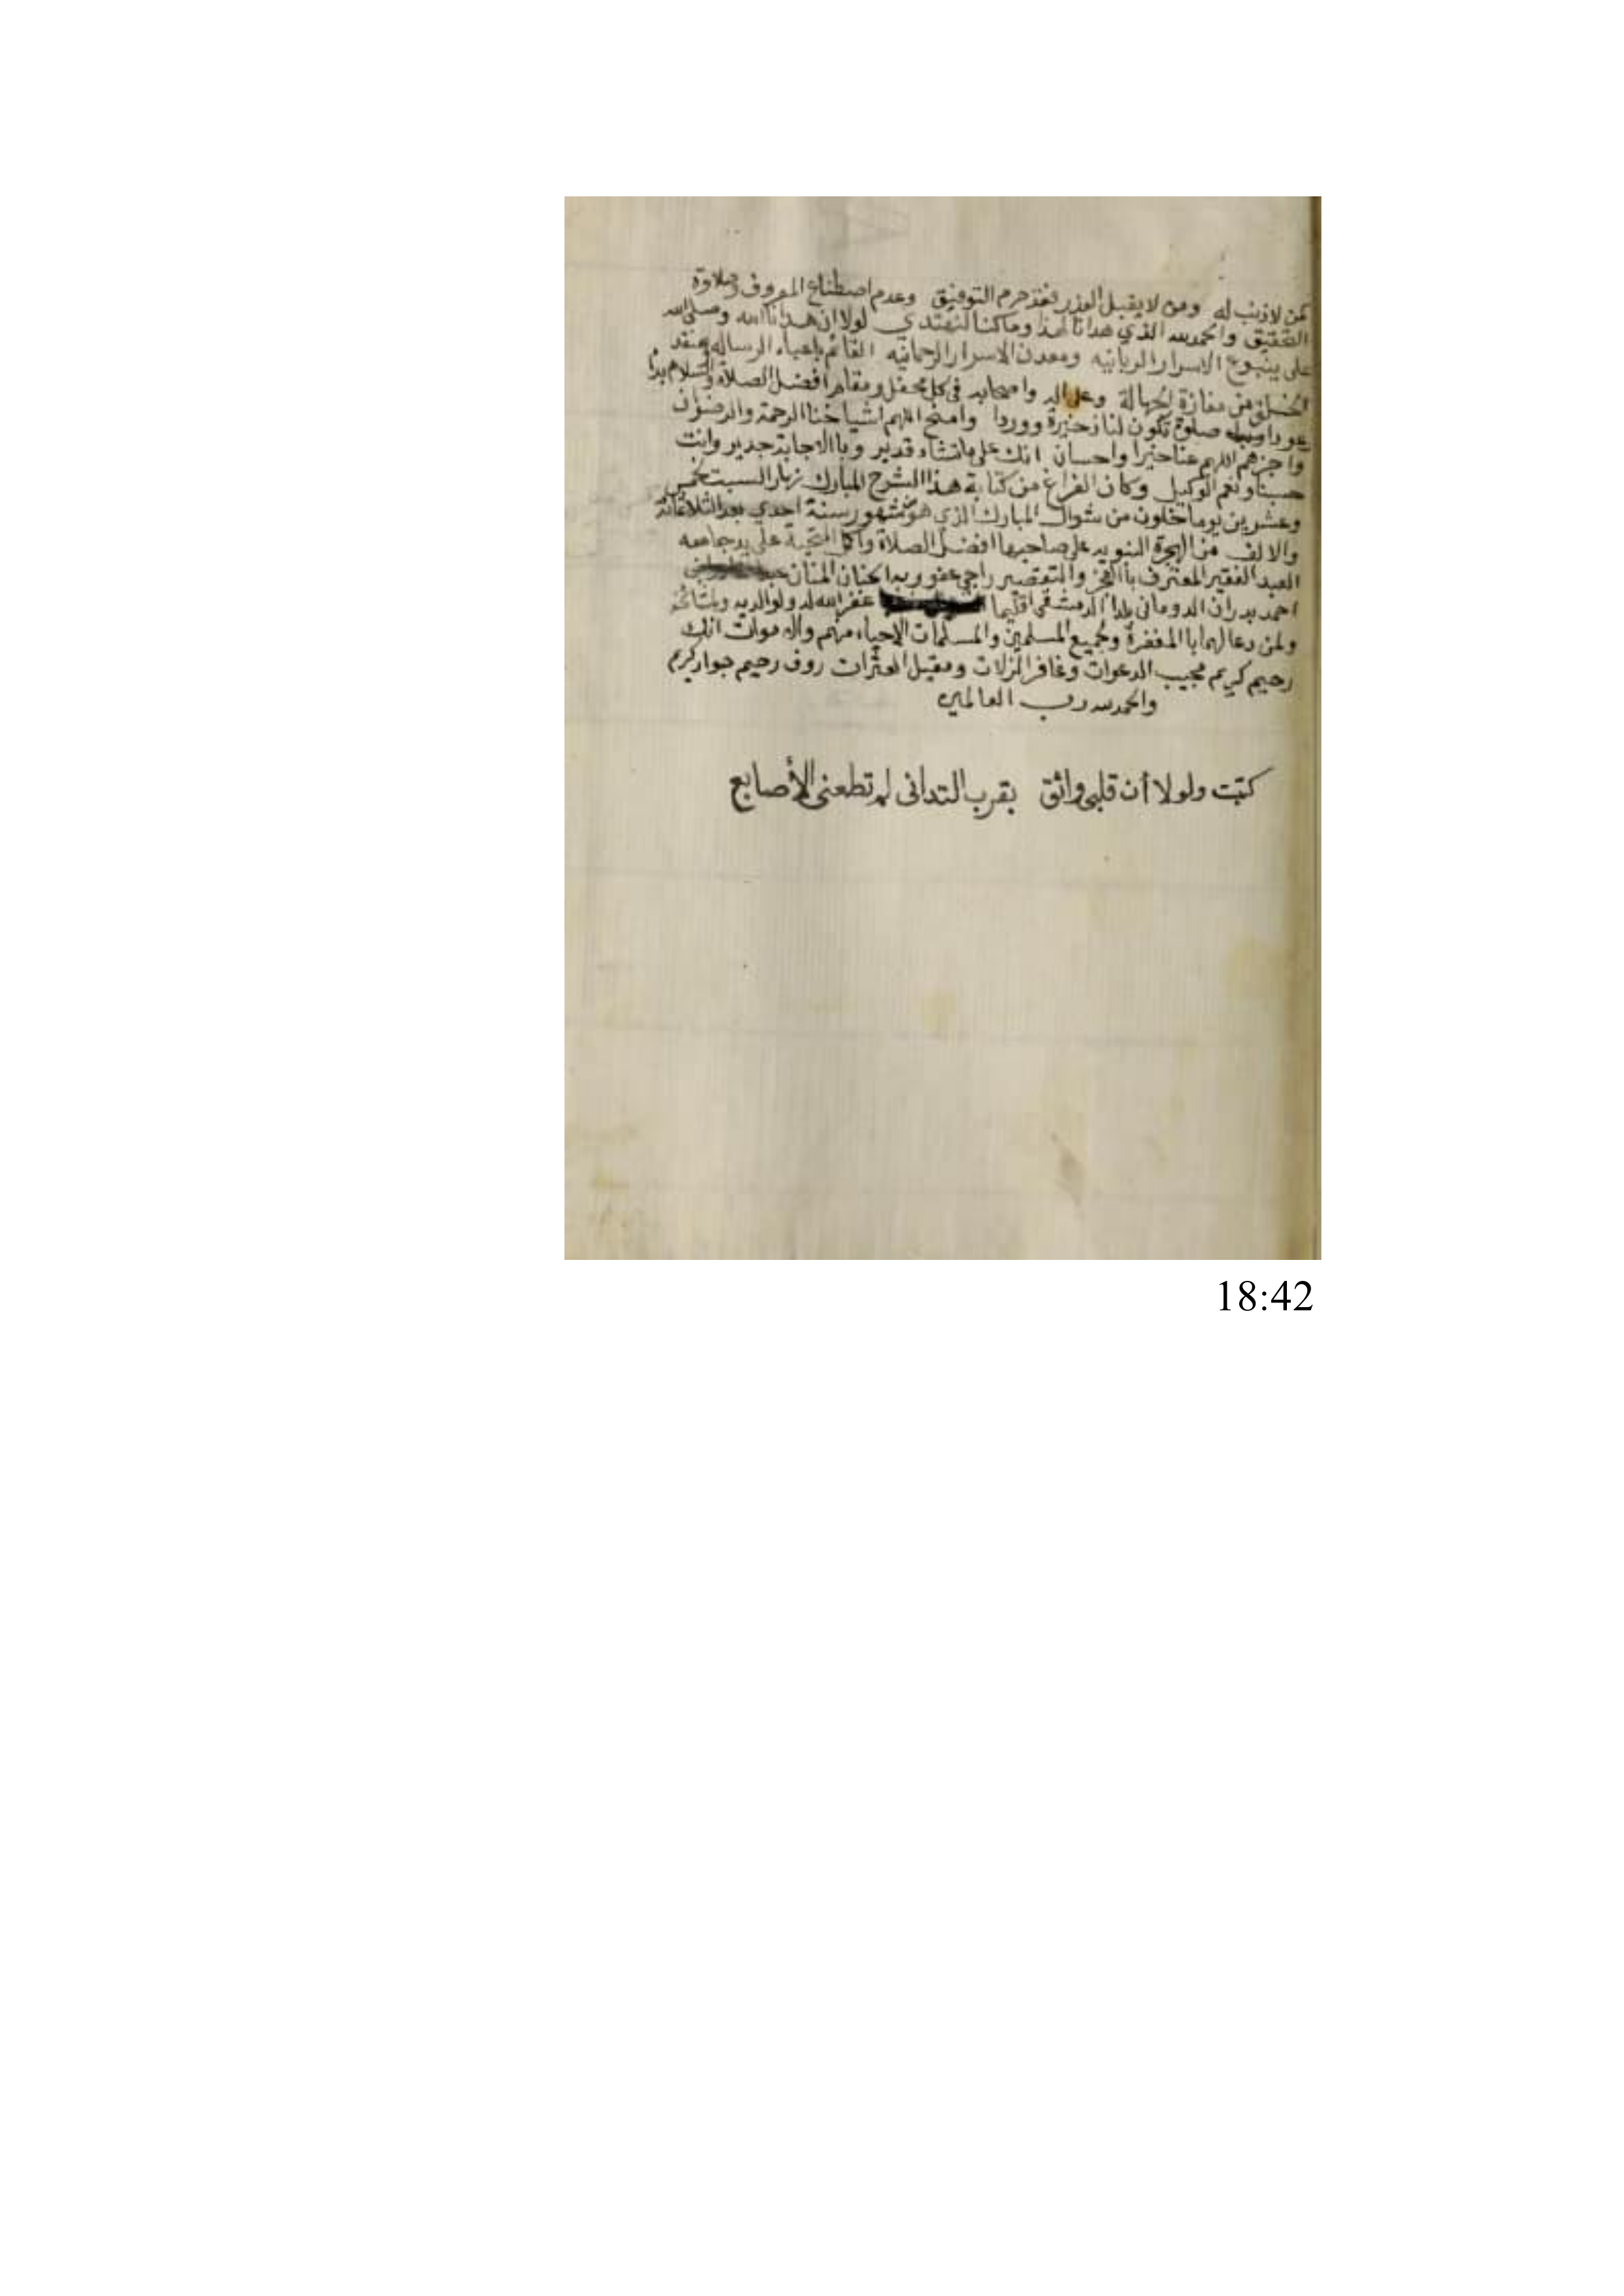 كمن لا ذنب له ومن لا يقبل العذر فقد حرم التوفيق وعدم اصطناع المعروف وحلاوة
التحقيق والحمدلله الذي هدانا لهذا وما كنا لنهتدي لولا ان هدانا الله وصلى الله
على ينبوع الاسرار الربانيه ومعدن الاسرار الرحمانيه القائم باعباء الرساله ومنقذ
الخلق من مفازة الجهالة وعلى اله واصحابه في كل محفل ومقام افضل الصلاة والسلام بدأ
عودا صلوة تكون لنا ذخيرة ووردا وامنح اللهم اشياخنا الرحمة والرضوان
واجزهم اللهم عنا خيرا واحسان انك على ما تشاء قدير وباالاجابة جدير وانت
حسبنا ونعم الوكيل وكان الفراغ من كتابة هذا الشرح المبارك نهار السبت لخمس
وعشرين يوما خلون من شوال المبارك الذي هو من شهور سنة احدي بعد الثلاثمائة
والالف من الهجرة النبويه على صاحبها افضل الصلاة واكمل التحية على يد جامعه
العبد الفقير المعترف باالعجز والتقصير راجي عفو ربه الحنان المنان
احمد بدران الدوماني بلدا الدمشقي اقليما غفر الله له ولوالديه ولمشائخه
ولمن دعا لهم باالمغفرة ولجميع المسلمين والمسلمات الاحياء منهم والاموات انك
رحيم كريم مجيب الدعوات وغافر الزلات ومقيل العثرات روف رحيم جواد كريم
والحمدلله رب العالمين
كتبت ولولا أن قلبي واثق بقرب التداني لم تطعني الأصابع
18:42